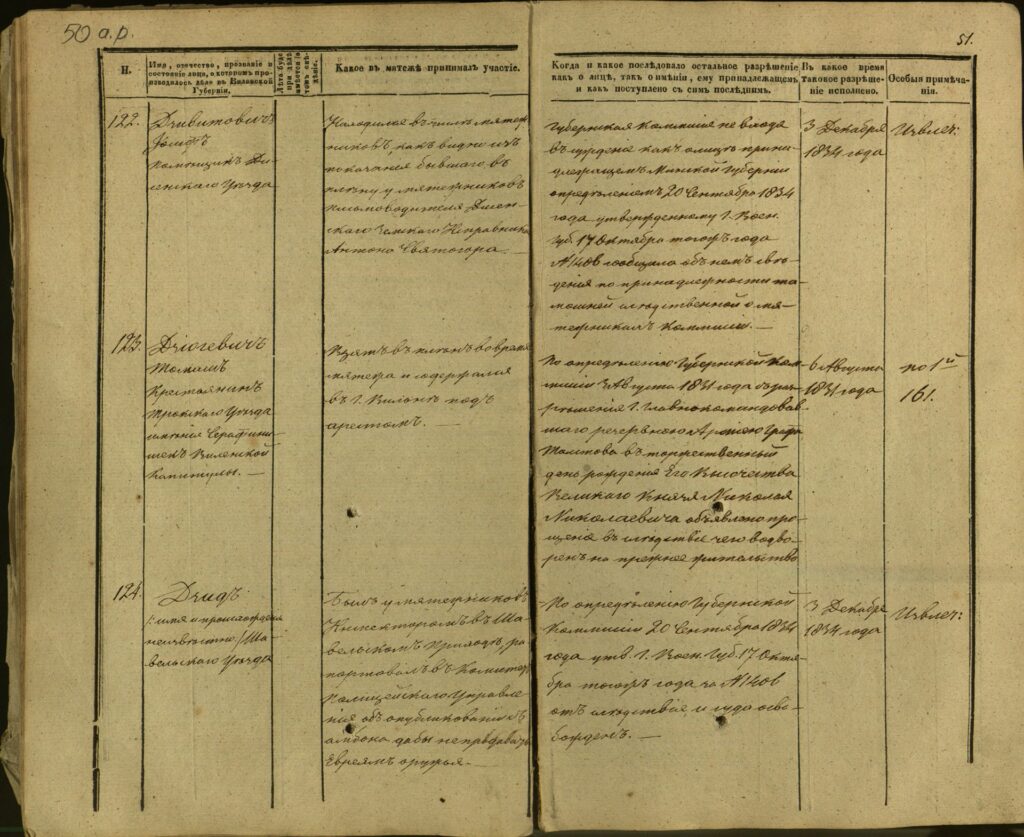 50 a.p.
51.
Н.
Имя, отечество, прозвание и
состояние лица, о которомъ про-
изводилось дѣло въ Виленской
Губерніи.
Какое въ матежѣ принималъ участіе.
Когда и какое послѣдовало остальное разрѣшеніе
какъ о лицѣ, такъ о имѣніи, ему принадлежащемъ
и какъ поступлено съ симъ послѣднимъ.
Въ какое время
таковое разрѣше-
ніе исполнено.
Особыя примѣча-
нія.
122.
Іосифъ
Уѣзда
Находился въ числѣ мятеж-
никовъ, какъ видно изъ
показанія бывшаго въ
плѣну у мятежниковъ
письмоводителя Дисен-
скаго Земскаго Исправника
Антона Святогора.
Губернская Коммисія не входя
въ сужденіе какъ о лицѣ прина-
длежащемъ Минской Губерніи
опредѣленіемъ 20 Сентября 1834
года утвержденному Г. Воен.
Губ. 17 Октября тогожъ года
N 1408 сообщила объ немъ свѣ-
денія по принадлежности та-
мошней слѣдственной о мя-
тежникахъ Коммисіи. —
3 Декабря
1834 года
Извлеч:
123.
Томашъ
Крестьянинъ
Трокскаго Уѣзда
имѣнія Серафини-
шекъ Виленской
Капитулы. —
Взятъ въ плѣнъ во время
мятежа и содержался
въ г. Вильнѣ подъ
арестомъ. —
По опредѣленію Губернской Ком-
мисіи Августа 1831 года съ раз-
рѣшенія Г. Главнокомандовав-
шаго резервною Арміею Графа
Толстова въ торжественный
день рожденія Его Высочества
Великаго Князя Николая
Николаевича объявлено про-
щеніе въ слѣдствіе чего водво-
ренъ на прежнее жительство
6 Августа
1831 года
по 1й
161.
124.
Дзидъ
/ имя и происхожденіе
неизвѣстно / Ша-
вельскаго Уѣзда
Былъ у мятежниковъ
Инспекторомъ въ Ша-
вельскомъ Приходѣ, ра-
портовалъ въ Комитетъ
Полицейскаго Управле-
нія объ опубликованіи съ
амвона дабы не продавать
Евреямъ оружья. —
По опредѣленію Губернской
Коммисіи 20 Сентября 1834
года утв. Г. Воен. Губ. 17 Октя-
бря тогожъ года за N 1408
отъ слѣдствія и суда осво-
божденъ. —
3 Декабря
1834 года
Извлеч: